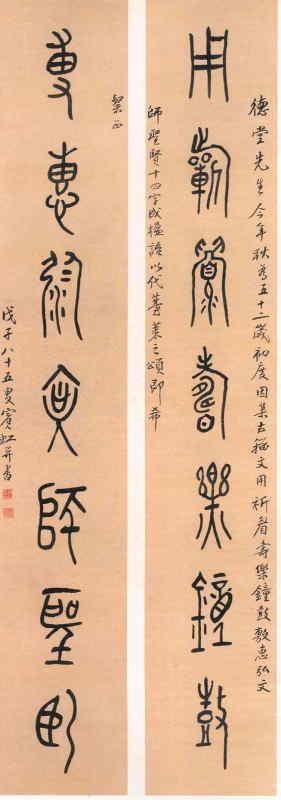 德堂先生今年秋為五十二歲初度因集古籀文用祈眉壽樂鐘鼓敷惠弘文
用祈眉壽樂鐘鼓
師聖賢十四字成楹語以代之頌即希
粲正
敷惠弘文師聖賢
戊子八十五叟賓虹并書